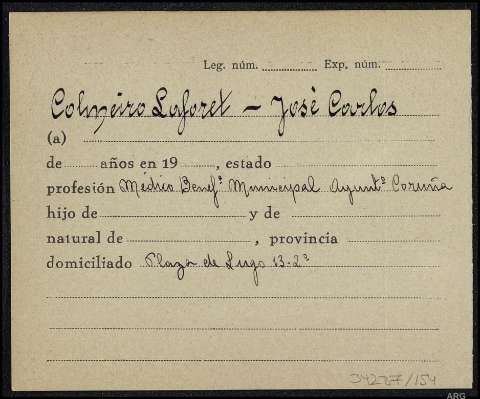 Leg. núm. Exp. núm.
Colmeiro Laforet - José Carlos
(a)
de años en 19 , estado
profesión Médico Benefª Municipal Ayuntº Coruña
hijo de y de
natural de , provincia
domiciliado Plaza de Lugo 13-2º
34287/154
ARG